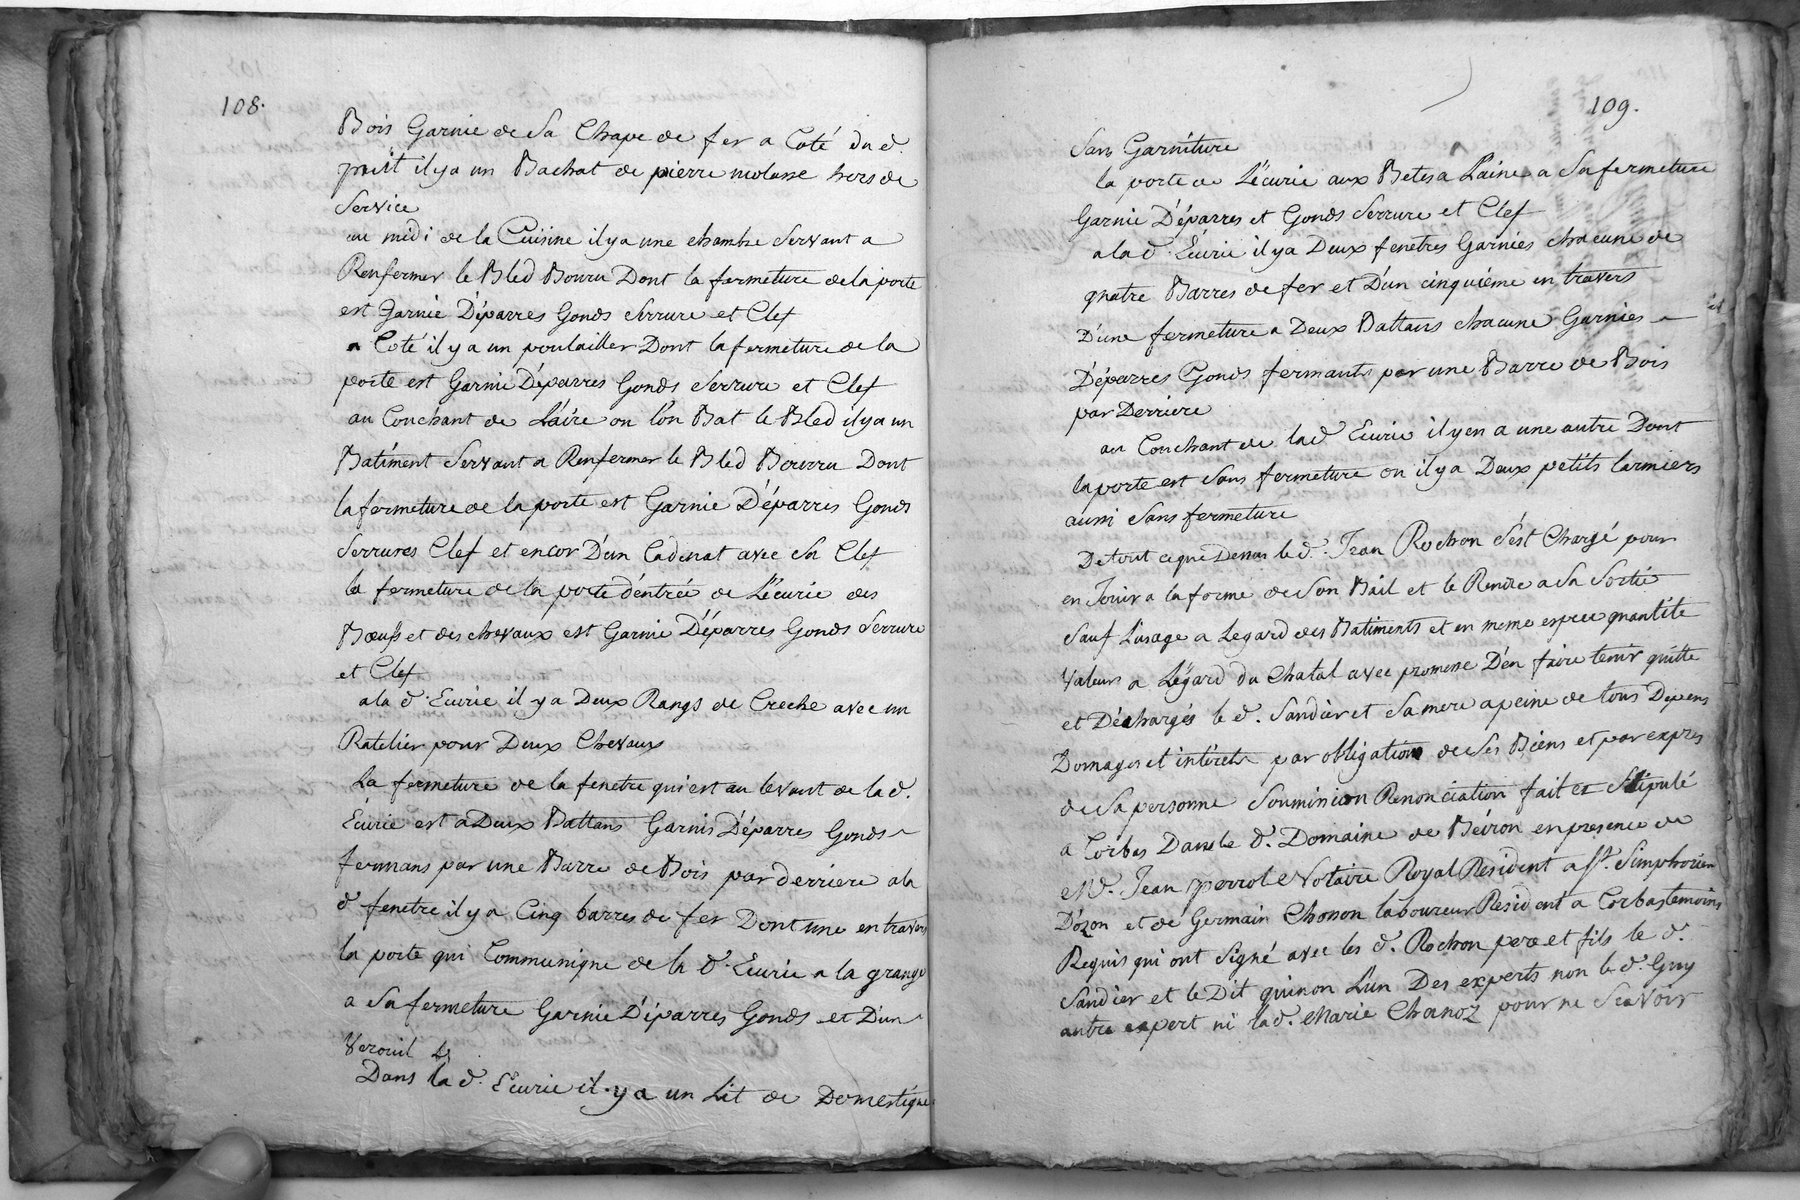 108.
Bois Garnie de Sa Chape de fer a Coté du d.
puit il ya un Bachat de pierre molasse hors de
Service
au midi de la Cuisine il ya une chambre Servant a
Renfermer le Bled Bouru Dont la fermeture de la porte
est Garnie D'éparres Gonds Serrure et Clef
a Coté il y a un poulailler Dont la fermeture de la
porte est Garnie D'éparres Gonds Serrure et Clef
au Couchant de L'aire ou l'on Bat le Bled il ya un
Batiment Servant a Renfermer le Bled Bourru Dont
la fermeture de la porte est Garnie D'éparres Gonds
Serrures Clef et encor D'un Cadenat avec Sa Clef
la fermeture de la porte d'éntrée de L'écurie des
Bœufs et des chevaux est Garnie D'éparres Gonds Serrure
et Clef
a la d. Ecurie il y a Deux Rangs de Creche avec un
Ratelier pour Deux Chevaux
La fermeture de la fenetre qui est au levant de la d.
Écurie est a Deux Battans Garnis D'éparres Gonds
fermans par une Barre de Bois par derriere a la
d fenetre il y a Cinq barres de fer Dont une en travers
la porte qui Communique de la d. Ecurie a la grange
a Sa fermeture Garnie D'éparres Gonds et D'un
Verouil
Dans la d. Ecurie il y a un Lit de Domestique
109.
Sans Garniture
la porte de L'écurie aux Betes a Laine a Sa fermeture
Garnie D'éparres et Gonds Serrure et Clef
a la d. Écurie il ya Deux fenetres Garnies chacune de
quatre Barres de fer et D'un cinquiéme en travers
D'une fermeture a Deux Battans chacune Garnies et
D'éparres Gonds fermants par une Barre de Bois
par Derriere
au Couchant de la d. Ecurie il y en a une autre Dont
la porte est Sans fermeture ou il ya Deux petits larmiers
aussi Sans fermeture
De tout ce que Dessus le d. Jean Rochon s'est Chargé pour
en Jouir a la forme de Son Bail et le Rendre a Sa Sortie
Sauf L'usage a Legard des Batiments et en meme espece quantité
Valeur a L'égard du Chatal avec promesse D'en faire tenir quitte
et Déchargés le d. Sandier et Sa mere a peine de tous Depens
Domages et intérets par obligation de Ses Biens et par expres
de Sa personne Soumission Renonciation fait et Stipulé
a Corbas Dans le d. Domaine de Béiron en presence de
Md. Jean perrot Notaire Royal Resident a St. Simphorien
D'ozon et de Germain Chosson laboureur Resident a Corbas temoins
Requis qui ont Signé avec les d. Rochon pere et fils le d.
Sandier et le Dit quinon L'un Des experts non le d. Guy
autre expert ni la d. Marie Chanoz pour ne Scavoir